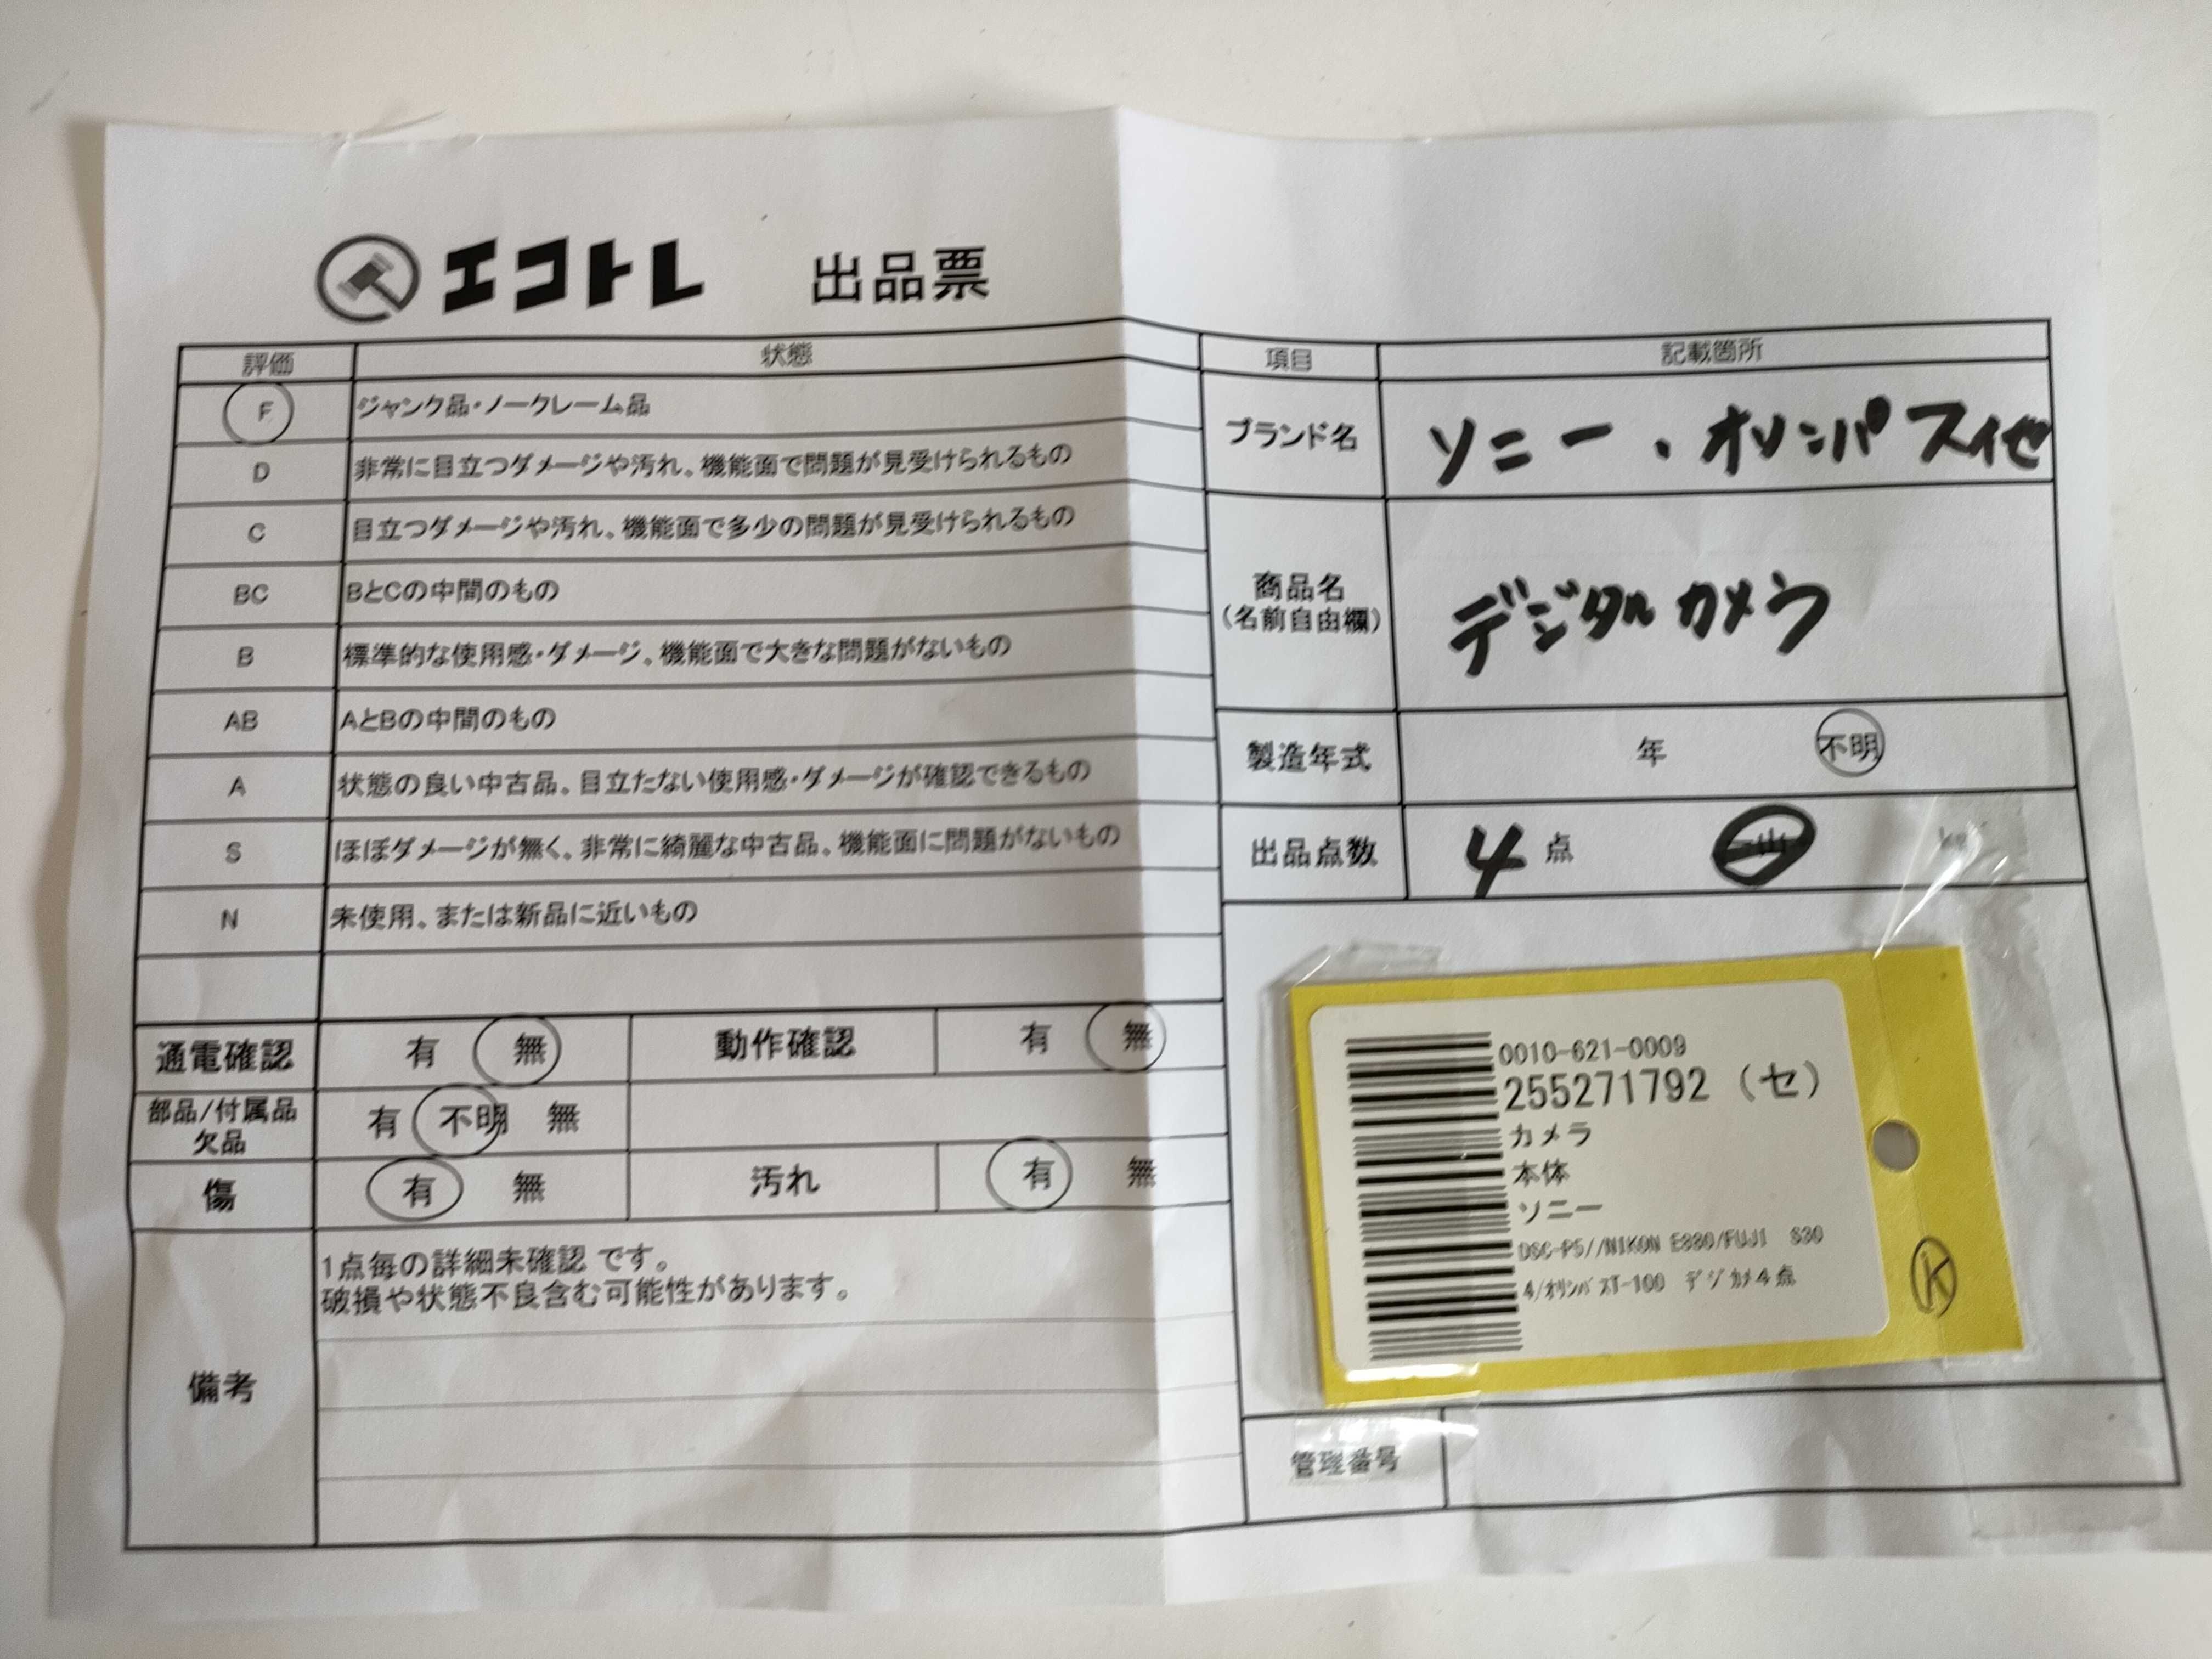 エコトレ 出品票
評価 状態
F ジャンク品・ノークレーム品
D 非常に目立つダメージや汚れ、機能面で問題が見受けられるもの
C 目立つダメージや汚れ、機能面で多少の問題が見受けられるもの
BC BとCの中間のもの
B 標準的な使用感・ダメージ、機能面で大きな問題がないもの
AB AとBの中間のもの
A 状態の良い中古品。目立たない使用感・ダメージが確認できるもの
S ほぼダメージが無く、非常に綺麗な中古品、機能面に問題がないもの
N 未使用、または新品に近いもの
通電確認 有 無 動作確認 有 無
部品/付属品 有 不明 無
欠品
傷 有 無 汚れ 有 無
備考
1点毎の詳細未確認 です。
破損や状態不良含む可能性があります。
項目 記載箇所
ブランド名 ソニー、オリンパス他
商品名
(名前自由欄)
デジタルカメラ
製造年式 年 不明
出品点数 4 点
0010-621-0009
255271792 (セ)
カメラ
本体
ソニー
DSC-P5//NIKON E880/FUJI S30
4/オリンパスT-100 デジカメ4点
K
管理番号